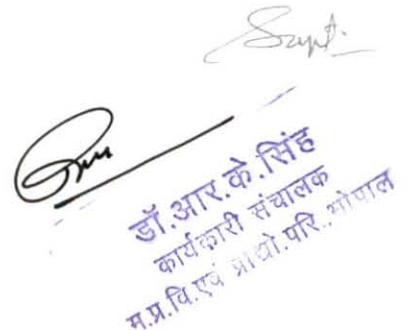 डॉ.आर.के.सिंह
कार्यकारी संचालक
म.प्र.वि.एवं प्रायो.परि..भोपाल